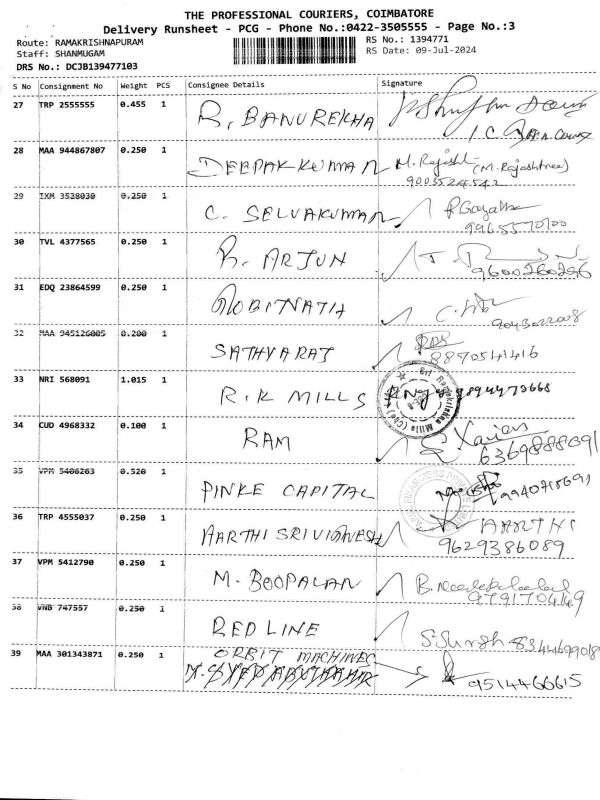 THE PROFESSIONAL COURIERS, COIMBATORE
Delivery Runsheet - PCG - Phone No.:0422-3505555 - Page No.:3
Route: RAMAKRISHNAPURAM
RS No.: 1394771
Staff: SHANMUGAM
RS Date: 09-Jul-2024
DRS No.: DCJB139477103
S No Consignment No Weight PCS Consignee Details Signature
27 TRP 2555555 0.455 1 R. BANUREKHA
28 MAA 944867807 0.250 1 DEEPAK KUMAR M. Rajashree (M. Rajashree)
9003524542
29 IXM 3528030 0.250 1 C. SELVAKUMAR
9965570100
30 TVL 4377565 0.250 1 R. ARJUN
9600260296
31 EDQ 23864599 0.250 1 GOBINATH
32 MAA 945126005 0.200 1 SATHYARAJ
8870541416
33 NRI 568091 1.015 1 R.K MILLS
9894473668
34 CUD 4968332 0.100 1 RAM
6369888091
35 VPM 5406263 0.520 1 PINKE CAPITAL
36 TRP 4555037 0.250 1 AARTHI SRIVIGNESH AARTHI
9629386089
37 VPM 5412790 0.250 1 M. BOOPALAN
9791704149
38 VNB 747557 0.250 1 RED LINE
39 MAA 301343871 0.250 1 ORBIT MACHINES
9514466615